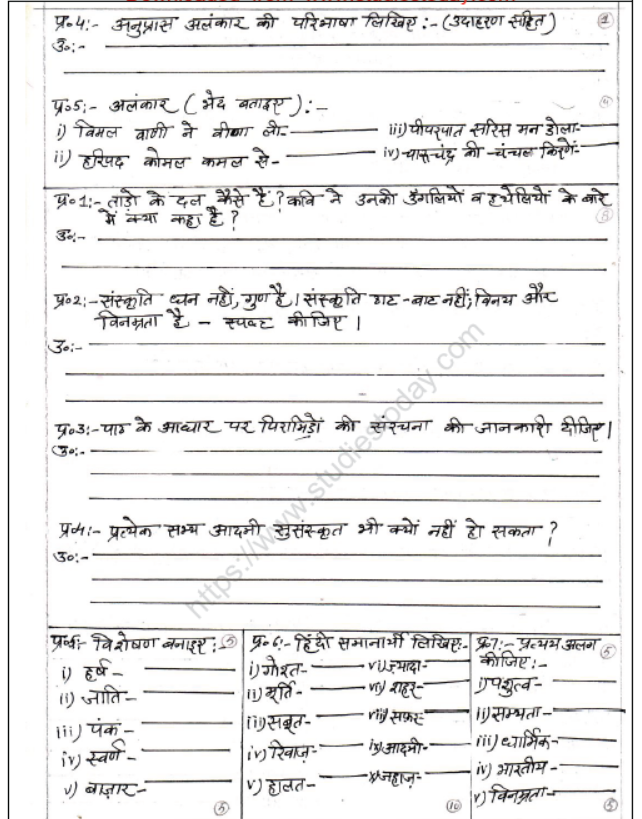 प्र०4:- अनुप्रास अलंकार की परिभाषा लिखिए :- (उदाहरण सहित) 1
उ०:-
प्र०5:- अलंकार ( भेद बताइए ) :-
i) विमल वाणी ने वीणा ली-
iii) पीपरपात सरिस मन डोला-
ii) हरिपद कोमल कमल से-
iv) चारूचंद्र की चंचल किरणें-
प्र०1:- ताड़ो के दल कैसे हैं ? कवि ने उनकी उँगलियों व हथेलियों के बारे
में क्या कहा है ?
उ०:-
प्र०2:- संस्कृति धन नहीं, गुण है। संस्कृति ठाट-बाट नहीं; विनय और
विनम्रता है - स्पष्ट कीजिए ।
उ०:-
प्र०3:- पाठ के आधार पर पिरामिडों की संरचना की जानकारी दीजिए।
उ०:-
प्र०4:- प्रत्येक सभ्य आदमी सुसंस्कृत भी क्यों नहीं हो सकता ?
उ०:-
https://www.studiestoday.com
प्र०5:- विशेषण बनाइए: 5
i) हर्ष -
ii) जाति -
iii) पंक -
iv) स्वर्ण -
v) बाज़ार -
5
प्र०6:- हिंदी समानार्थी लिखिए:-
i) गोश्त-
vi) ज़्यादा-
ii) मूर्ति-
vii) शहर-
iii) सबूत-
viii) सफ़र-
iv) रिवाज़-
ix) आदमी-
v) हालत-
x) जहाज़-
10
प्र०7:- प्रत्यय अलग 5
कीजिए :-
i) पशुत्व-
ii) सभ्यता-
iii) धार्मिक-
iv) भारतीय-
v) विनम्रता-
5